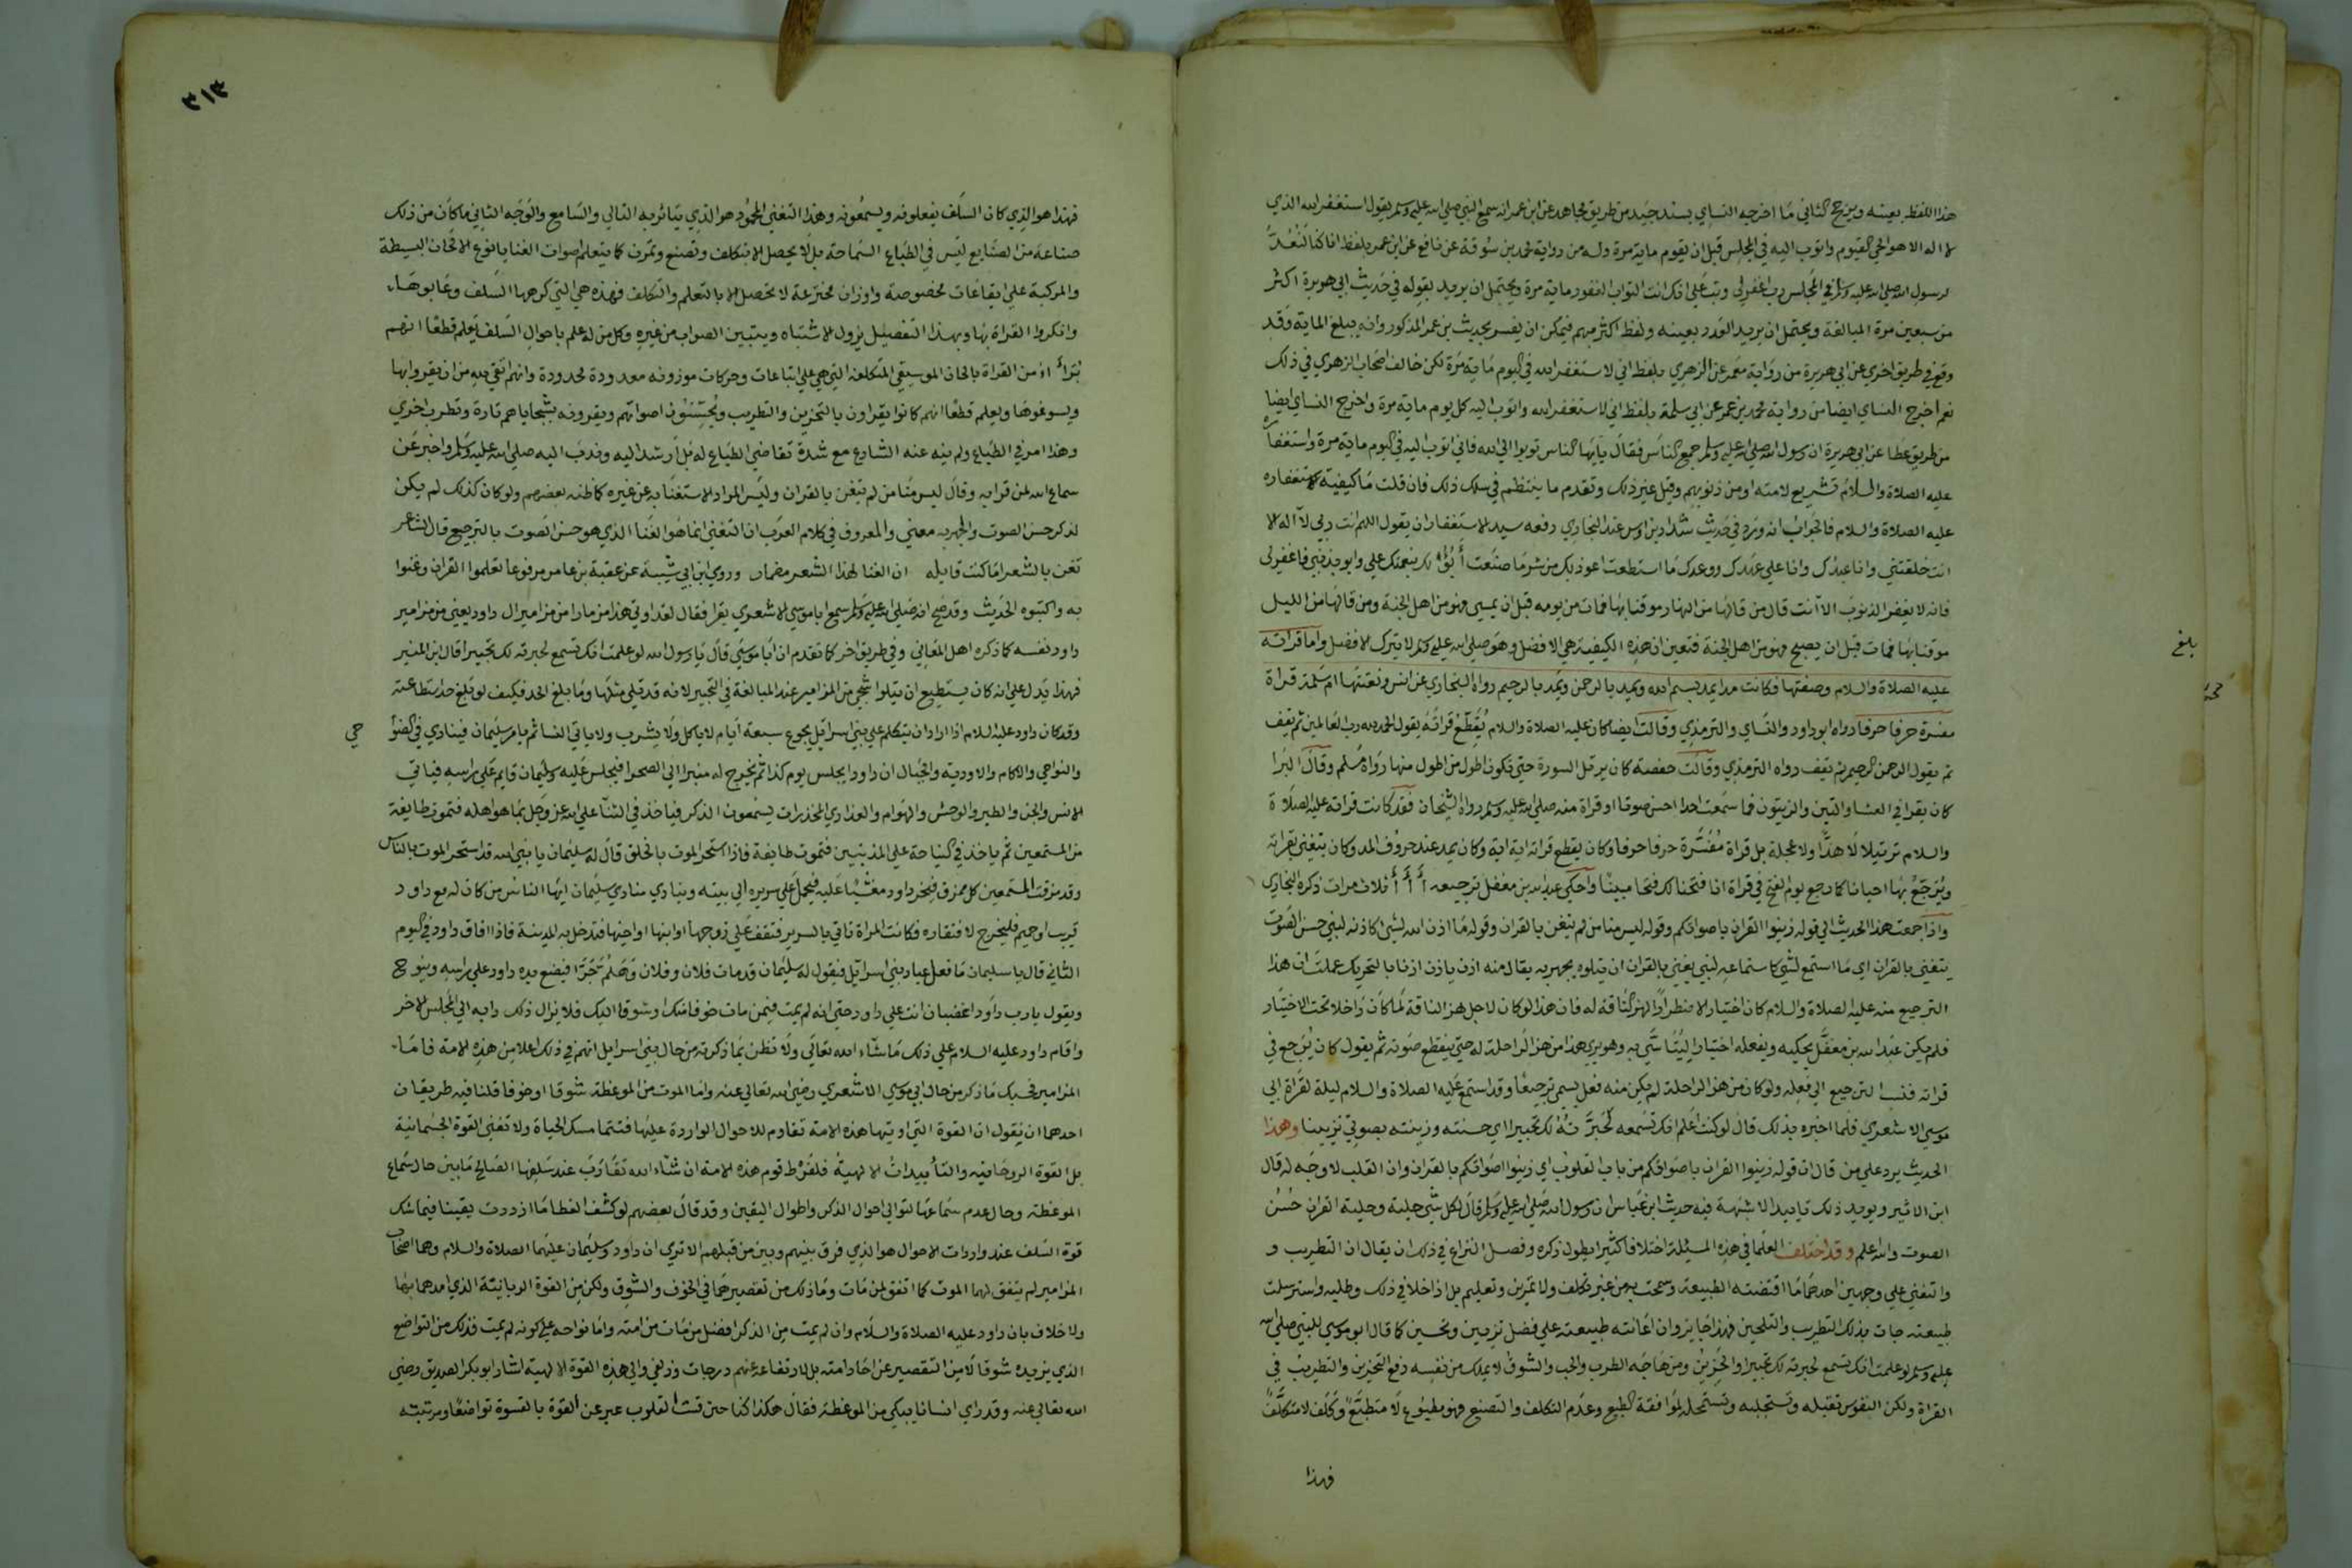 هذا اللفظ بعينه ويرجح الثاني ما اخرجه النساي بسند جيد من طريق مجاهد عن ابن عمر انه سمع النبي صلي الله عليه وسلم يقول استغفر الله الذي
لا اله الا هو الحي القيوم واتوب اليه في المجلس قبل ان يقوم ماية مرة وله من رواية محمد بن سوقة عن نافع عن ابن عمر بلفظ انا كنا لنعد
لرسول الله صلي الله عليه وسلم في المجلس رب اغفر لي وتب علي انك انت التواب الغفور ماية مرة ويحتمل ان يريد بقوله في حديث ابي هريرة اكثر
من سبعين مرة المبالغة ويحتمل ان يريد العدد بعينه ولفظ اكثر مبهم فيمكن ان يفسر بحديث بن عمر المذكور وانه يبلغ الماية وقد
وقع في طريق اخري عن ابي هريرة من رواية معمر عن الزهري بلفظ اني لاستغفر الله في اليوم ماية مرة لكن خالف اصحاب الزهري في ذلك
نعم اخرج النساي ايضا من رواية محمد بن عمر عن ابي سلمة بلفظ اني لاستغفر الله واتوب اليه كل يوم ماية مرة واخرج النساي ايضا
من طريق عطا عن ابي هريرة ان رسول الله صلي الله عليه وسلم جمع الناس فقال يايها الناس توبوا الي الله فاني اتوب اليه في اليوم ماية مرة واستغفاره
عليه الصلاة والسلام تشريع لامته او من ذنوبهم وقيل غير ذلك وتقدم ما ينتظم في سلك ذلك فان قلت ما كيفية استغفاره
عليه الصلاة والسلام فالجواب انه ورد في حديث شداد بن اوس عند البخاري رفعه سيد الاستغفار ان يقول اللهم انت ربي لا اله الا
انت خلقتني وانا عبدك وانا علي عهدك ووعدك ما استطعت اعوذ بك من شر ما صنعت أبوُء لك بنعمتك علي وابو بذنبي فاغفر لي
فانه لا يغفر الذنوب الا انت قال من قالها من النهار موقنا بها فمات من يومه قبل ان يمسي فهو من اهل الجنة ومن قالها من الليل
موقنا بها فمات قبل ان يصبح فهو من اهل الجنة فتعين ان هذه الكيفية هي الافضل وهو صلي الله عليه وسلم لا يترك الافضل واما قراته
عليه الصلاة والسلام وصفتها فكانت مدا يمد ببسم الله ويمد بالرحمن ويمد بالرحيم رواه البخاري عن انس ونعتتها ام سلمة قراة
مفسرة حرفا حرفا رواه ابو داود والنساي والترمذي وقالت ايضا كان عليه الصلاة والسلام يُقَطِّعُ قراتَه يقول الحمد لله رب العالمين ثم يقف
ثم يقول الرحمن الرحيم ثم يقف رواه الترمذي وقالت حفصة كان يرتل السورة حتي تكون اطول من اطول منها رواه مسلم وقال البرا
كان يقرا في العشا والتين والزيتون فما سمعت احدا احسن صوتا او قراة منه صلي الله عليه وسلم رواه الشيخان فقد كانت قراته عليه الصلاة
والسلام ترتيلا لا هذًّا ولا عجلة بل قراة مُفَسَّرة حرفا حرفا وكان يقطع قراته اية اية وكان يمد عند حروف المد وكان يتغني بقراته
ويُرَجّعُ بها احيانا كما رجع يوم الفتح في قراة انا فتحنا لك فتحا مبينًا وحكي عبد الله بن مغفل ترجيعه أ أ أ ثلاث مرات ذكره البخاري
واذا جمعت هذا الحديث الي قوله زينوا القران باصواتكم وقوله ليس منا من لم يتغن بالقران وقوله ما اذن الله لشي كاذنه لنبي حسن الصوت
يتغني بالقران اي ما استمع لشي كاستماعه لنبي يغني بالقران ان يتلوه يجهر به يقال منه اذن ياذن اذنا بالتحريك عملت ان هذا
الترجيع منه عليه الصلاة والسلام كان اختيارا لا اضطرارًا لهز الناقة له فان هذا لو كان لاجل هز الناقة لما كان داخلا تحت الاختيار
فلم يكن عبد الله بن مغفل يحكيه ويفعله اختيارا ليُتَاسّي به وهو يري هذا من هز الراحلة له حتي ينقطع صوته ثم يقول كان يُرجع في
قراته فنسب الترجيع الي فعله ولو كان من هز الراحلة لم يكن منه فعل يسمي ترجيعًا وقد استمع عليه الصلاة والسلام ليلة لقراة ابي
موسي الاشعري فلما اخبره بذلك قال لو كنت اعلم انك تسمعه لحَبَّرتُهُ لك تحبيرا اي حسنته وزينته بصوتي تزيينا وهذا
الحديث يرد علي من قال ان قوله زينوا القران باصواتكم من باب القلوب اي زينوا اصواتكم بالقران وان القلب لا وجه له قال
ابن الاثير ويويد ذلك تاييدا لا شبهة فيه حديث ابن عباس ان رسول الله صلي الله عليه وسلم قال لكل شي حلية وحلية القران حُسنُ
الصوت والله اعلم وقد اختلف العلما في هذه المسئلة اختلافا كثيرا يطول ذكره وفصل النزاع في ذلك ان يقال ان التطريب و
والتغني علي وجهين احدهما ما اقتضته الطبيعة وسمحت به من غير تكلف ولا تمرين وتعليم بل اذا خلا في ذلك وطليه واسترسلت
طبيعته جات بذلك التطريب والتلحين فهذا جايز وان اعانته طبيعته علي فضل تزيين وتحسين كما قال ابو موسي للنبي صلي الله
عليه وسلم لو علمت انك تسمع لحبرته لك تحبيرا والحزين ومن هاجه الطرب والحب والشوق لا يملك من نفسه دفع التحزين والتطريب في
القراة ولكن النفوس تقبله وتستجلبه وتستحله لموافقة الطبع وعدم التكلف والتصنع فهو مطبُوع لا متطَبّع وكلف لا متكلّف
فهذا
بلغ
٣١٣
فهذا هو الذي كان السلف يفعلونه ويسمعونه وهذا التغني المحمود هو الذي يتاثر به التالي والسامع والوجه الثاني ما كان من ذلك
صناعة من الصنايع ليس في الطباع السماحة به بل لا يحصل الا بتكلف وتصنع وتمرن كما يتعلم اصوات الغنا بانوع الالحان البسيطة
والمركبة علي ايقاعات مخصوصة واوزان مخترعة لا تحصل الا بالتعلم والتكلف فهذه هي التي كرهها السلف وعابوها
وانكروا القراة بها وبهذا التفصيل يزول الاشتباه ويتبين الصواب من غيره وكل من له علم باحوال السلف يعلم قطعًا انهم
بُرَاءُ من القراة بالحان الموسيقي المتكلفه التي هي علي ايقاعات وحركات موزونه معدودة محدودة وانهم اتقي لله من ان يقروا بها
ويسوغوها ويعلم قطعًا انهم كانوا يقراون بالتحزين والتطريب ويُحَسّنون اصواتهم ويقرونه بشجاياهم تارة وتطرب اخري
وهذا امر في الطباع ولم ينه عنه الشارع مع شدة تقاضي الطباع له بل ارشد اليه وندب اليه صلي الله عليه وسلم واخبر عن
سماع الله لمن قرا به وقال ليس منا من لم يتغن بالقران وليس المراد الاستغنا به عن غيره كما ظنه بعضهم ولو كان كذلك لم يكن
لذكر حسن الصوت والجهر به معني والمعروف في كلام العرب ان التغني انما هو الغنا الذي هو حسن الصوت بالترجيع قال الشاعر
تغن بالشعر اما كنت قايله ان الغنا لهذا الشعر مضمار وروي ابن ابي شيبة عن عقبة بن عامر مرفوعا تعلموا القران وغنوا
به واكتبوه الحديث وقد صح انه صلي الله عليه وسلم سمع ابا موسي الاشعري يقرا فقال لقد اوتي هذا مزمارا من مزامير ال داود يعني من مزامير
داود نفسه كما ذكره اهل المعاني وفي طريق اخر كما تقدم ان ابا موسي قال يا رسول الله لو علمت انك تسمع لحبرته لك تحبيرا قال ابن المنير
فهذا يدل علي انه كان يستطيع ان يتلوا شجي من المزامير عند المبالغة في التحبير لانه قد تلي مثلها وما بلغ الحد فكيف لو بلغ حد استطاعته
وقد كان داود عليه السلام اذا اراد ان يتكلم علي بني اسرائيل يجوع سبعة أيام لا ياكل ولا يشرب ولا ياتي النسا ثم يامر سليمان فينادي في الضوا
حي
والنواحي والاكام والاودية والجبال ان داود يجلس يوم كذا ثم يخرج له منبرا الي الصحرا فيجلس عليه وسليمان قايم علي راسه فياتي
الانس والجن والطير والوحش والهوام والعذاري المخدرات يسمعون الذكر فياخذ في الثنا علي الله عز وجل بما هو اهله فتموت طايفة
من المستمعين ثم ياخذ في النياحة علي المذنبين فتموت طايفة فاذا استحر الموت بالخلق قال له سليمان يا نبي الله قد استحر الموت بالناس
وقد مزقت المستمعين كل ممزق فيخر داود مغشيا عليه فيحمل علي سريره الي بيته وينادي منادي سليمان ايها الناس من كان له مع داود
قريب او حميم فليخرج لافتقاده فكانت المراة تاتي بالسرير فتقف علي زوجها او ابنها او اخيها فتدخل به المدينة فاذا افاق داود في اليوم
الثاني قال يا سليمان ما فعل عباد بني اسرائيل فيقول له سليمان قد مات فلان وفلان وفلان وهَلُم جَرّا فيضع يده داود علي راسه وينوح
ويقول يا رب داود اغضبان انت علي داود حتي انه لم يمت فيمن مات خوفا منك او شوقا اليك فلا يزال ذلك دابه الي المجلس الاخر
واقام داود عليه السلام علي ذلك ما شاء الله تعالي ولا تظن بما ذكرته من حال بني اسرايل انهم في ذلك اعلا من هذه الامة فاما
المزامير فحسبك ما ذكر من حال ابي موسي الاشعري رضي الله تعالي عنه واما الموت من الموعظة شوقا او خوفا فلنا فيه طريقان
احدهما ان نقول ان القوة التي اوتيها هذه الامة تقاوم للاحوال الواردة عليها فتتماسك الحياة ولا تغني القوة الجسمانية
بل القوة الروحانيه والتأييداتُ الالهيةُ فلفَرْط قوم هذه الامة ان شاء الله تقَارَبَ عند سلفها الصالح ما بين حال سماع
الموعظة وحال عدم سماعها لتوالي احوال الذكر واطوال اليقين وقد قال بعضهم لو كشف الغطا ما ازددت يقينا فيماسك
قوة السلف عند واردات الاحوال هو الذي فرق بينهم وبين من قبلهم الا تري ان داود وسليمان عليهما الصلاة والسلام وهما اصحاب
المزامير لم يتفق لهما الموت كما اتفق لمن مات وما ذلك من تقصيرهما في الخوف والشوق ولكن من القوة الربانية الذي امدهما بها
ولا خلاف بان داود عليه الصلاة والسلام وان لم يمت من الذكر افضل من مات من امته واما نواحه علي كونه لم يمت فذلك من التواضع
الذي يزيده شوقا لا من التقصير عن احاد امته بل لارتفاعه عنهم درجات وزلفي والي هذه القوة الالهية اشار ابو بكر الصديق رضي
الله تعالي عنه وقد راي انسانا يبكي من الموعظة فقال هكذا كنا حتي قست القلوب عبر عن القوة بالقسوة تواضعًا ومرتبته